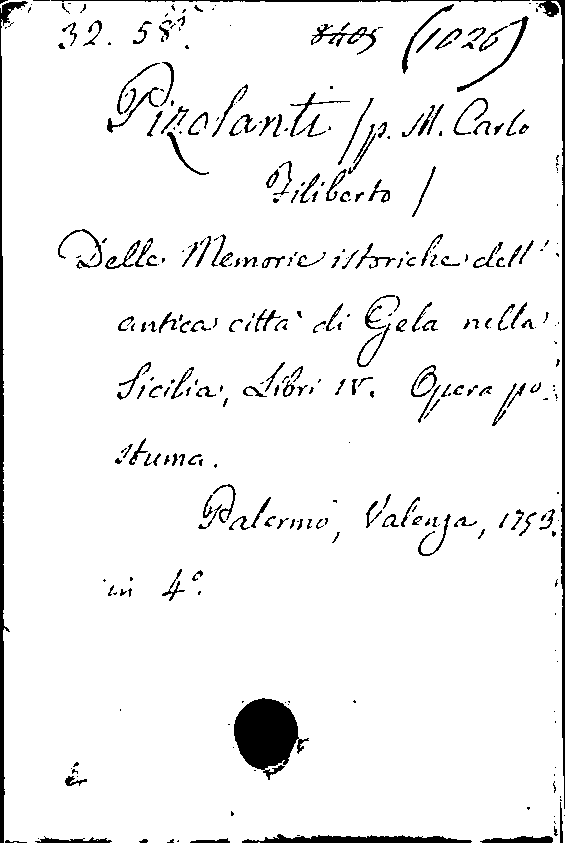 32. 58. 8405 (1026)
Pizolanti /p. M. Carlo
Filiberto /
Delle Memorie istoriche dell'
antica città di Gela nella
Sicilia, Libri IV. Opera po-
stuma.
Palermo, Valenza, 1753.
in 4º.